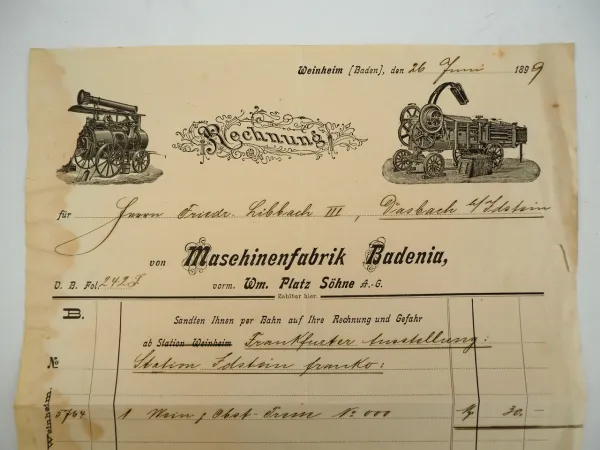 Weinheim [Baden], den 26 Juni 1899
Rechnung
für Herrn Friedr. Libbach III, Dasbach b/Idstein
von Maschinenfabrik Badenia,
V. B. Fol. 242
vorm. Wm. Platz Söhne A.-G.
Zahlbar hier.
B.
Sandten Ihnen per Bahn auf Ihre Rechnung und Gefahr
ab Station Weinheim Frankfurter Ausstellung:
Station Idstein franko:
No
5764 1 Wein & Obst- No 000 M 30. –
Weinheim.